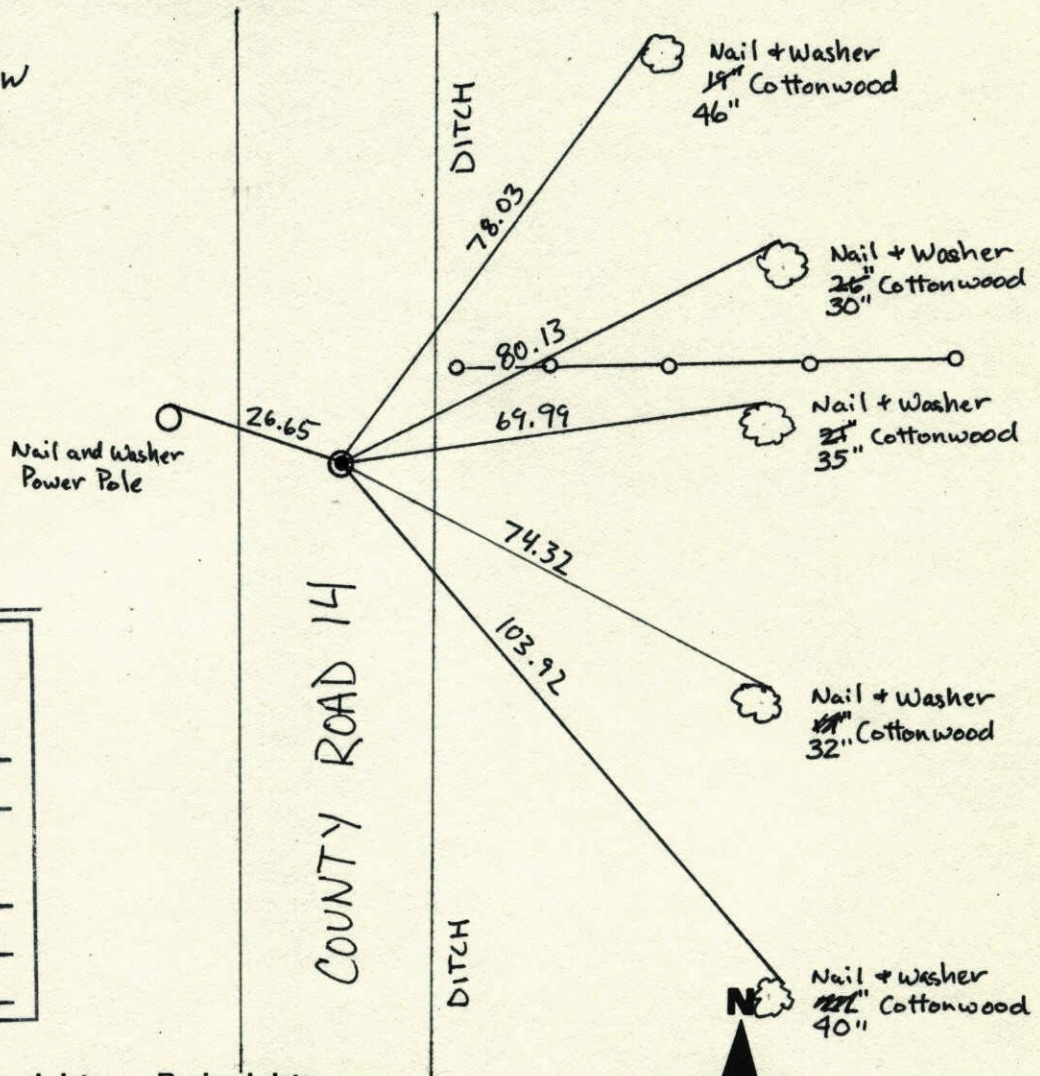 W
DITCH
Nail + Washer
19" Cottonwood
46"
78.03
Nail + Washer
26" Cottonwood
30"
80.13
26.65
69.99
Nail + Washer
21" Cottonwood
35"
Nail and Washer
Power Pole
74.32
103.92
COUNTY ROAD 14
Nail + Washer
Cottonwood
32"
DITCH
Nail + Washer
Cottonwood
40"
N